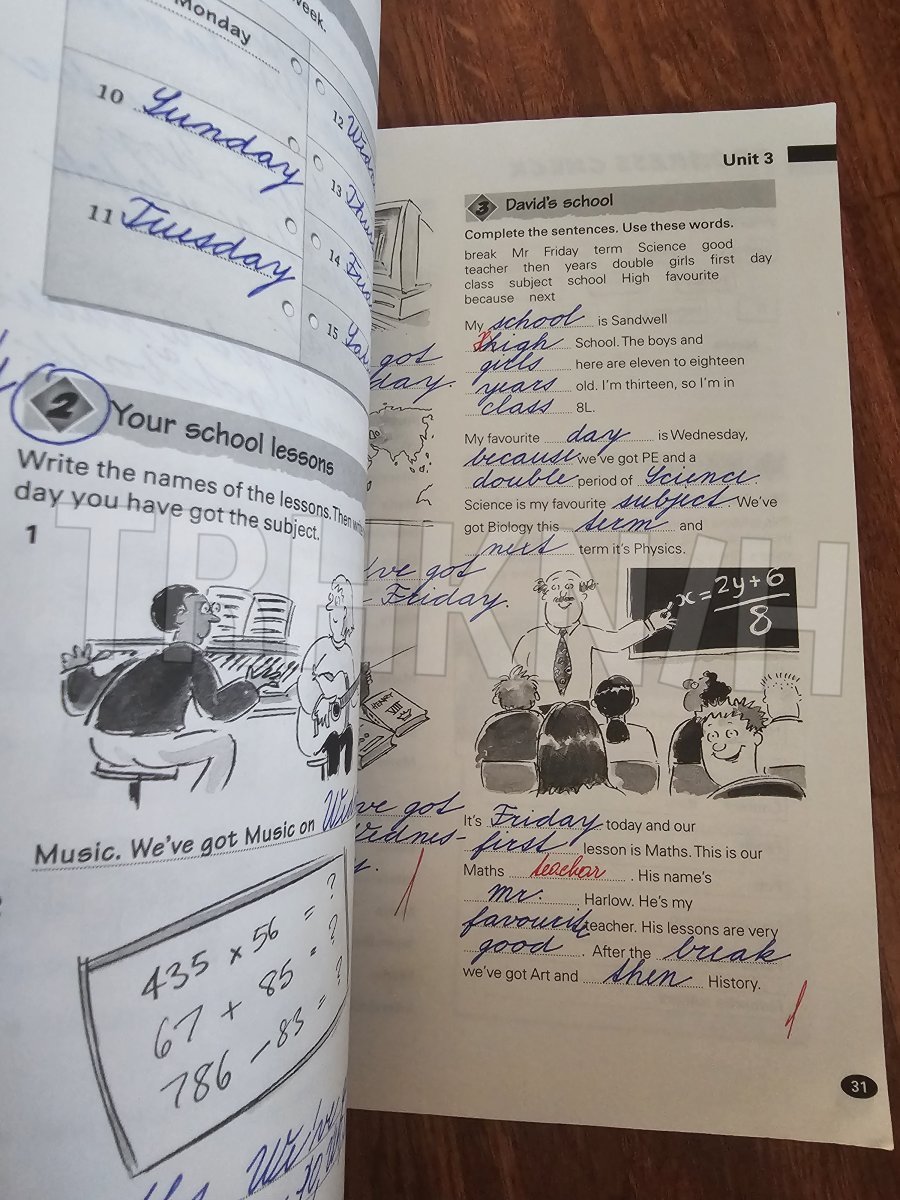 week.
Monday
10 Sunday
11 Tuesday
12
13
14
15
2 Your school lessons
Write the names of the lessons. Then write
day you have got the subject.
1
Music. We've got Music on
435 x 56 = ?
67 + 85 = ?
786 - 83 = ?
got
day.
've got
Friday.
HENRY VIII
've got
Wednes-
y.
Unit 3
3 David's school
Complete the sentences. Use these words.
break Mr Friday term Science good
teacher then years double girls first day
class subject school High favourite
because next
My school is Sandwell
high School. The boys and
girls here are eleven to eighteen
years old. I'm thirteen, so I'm in
class 8L.
My favourite day is Wednesday,
because we've got PE and a
double period of Science.
Science is my favourite subject. We've
got Biology this term and
next term it's Physics.
x = 2y + 6
8
It's Friday today and our
first lesson is Maths. This is our
Maths teacher. His name's
mr. Harlow. He's my
favourite teacher. His lessons are very
good. After the break
we've got Art and then History.
31